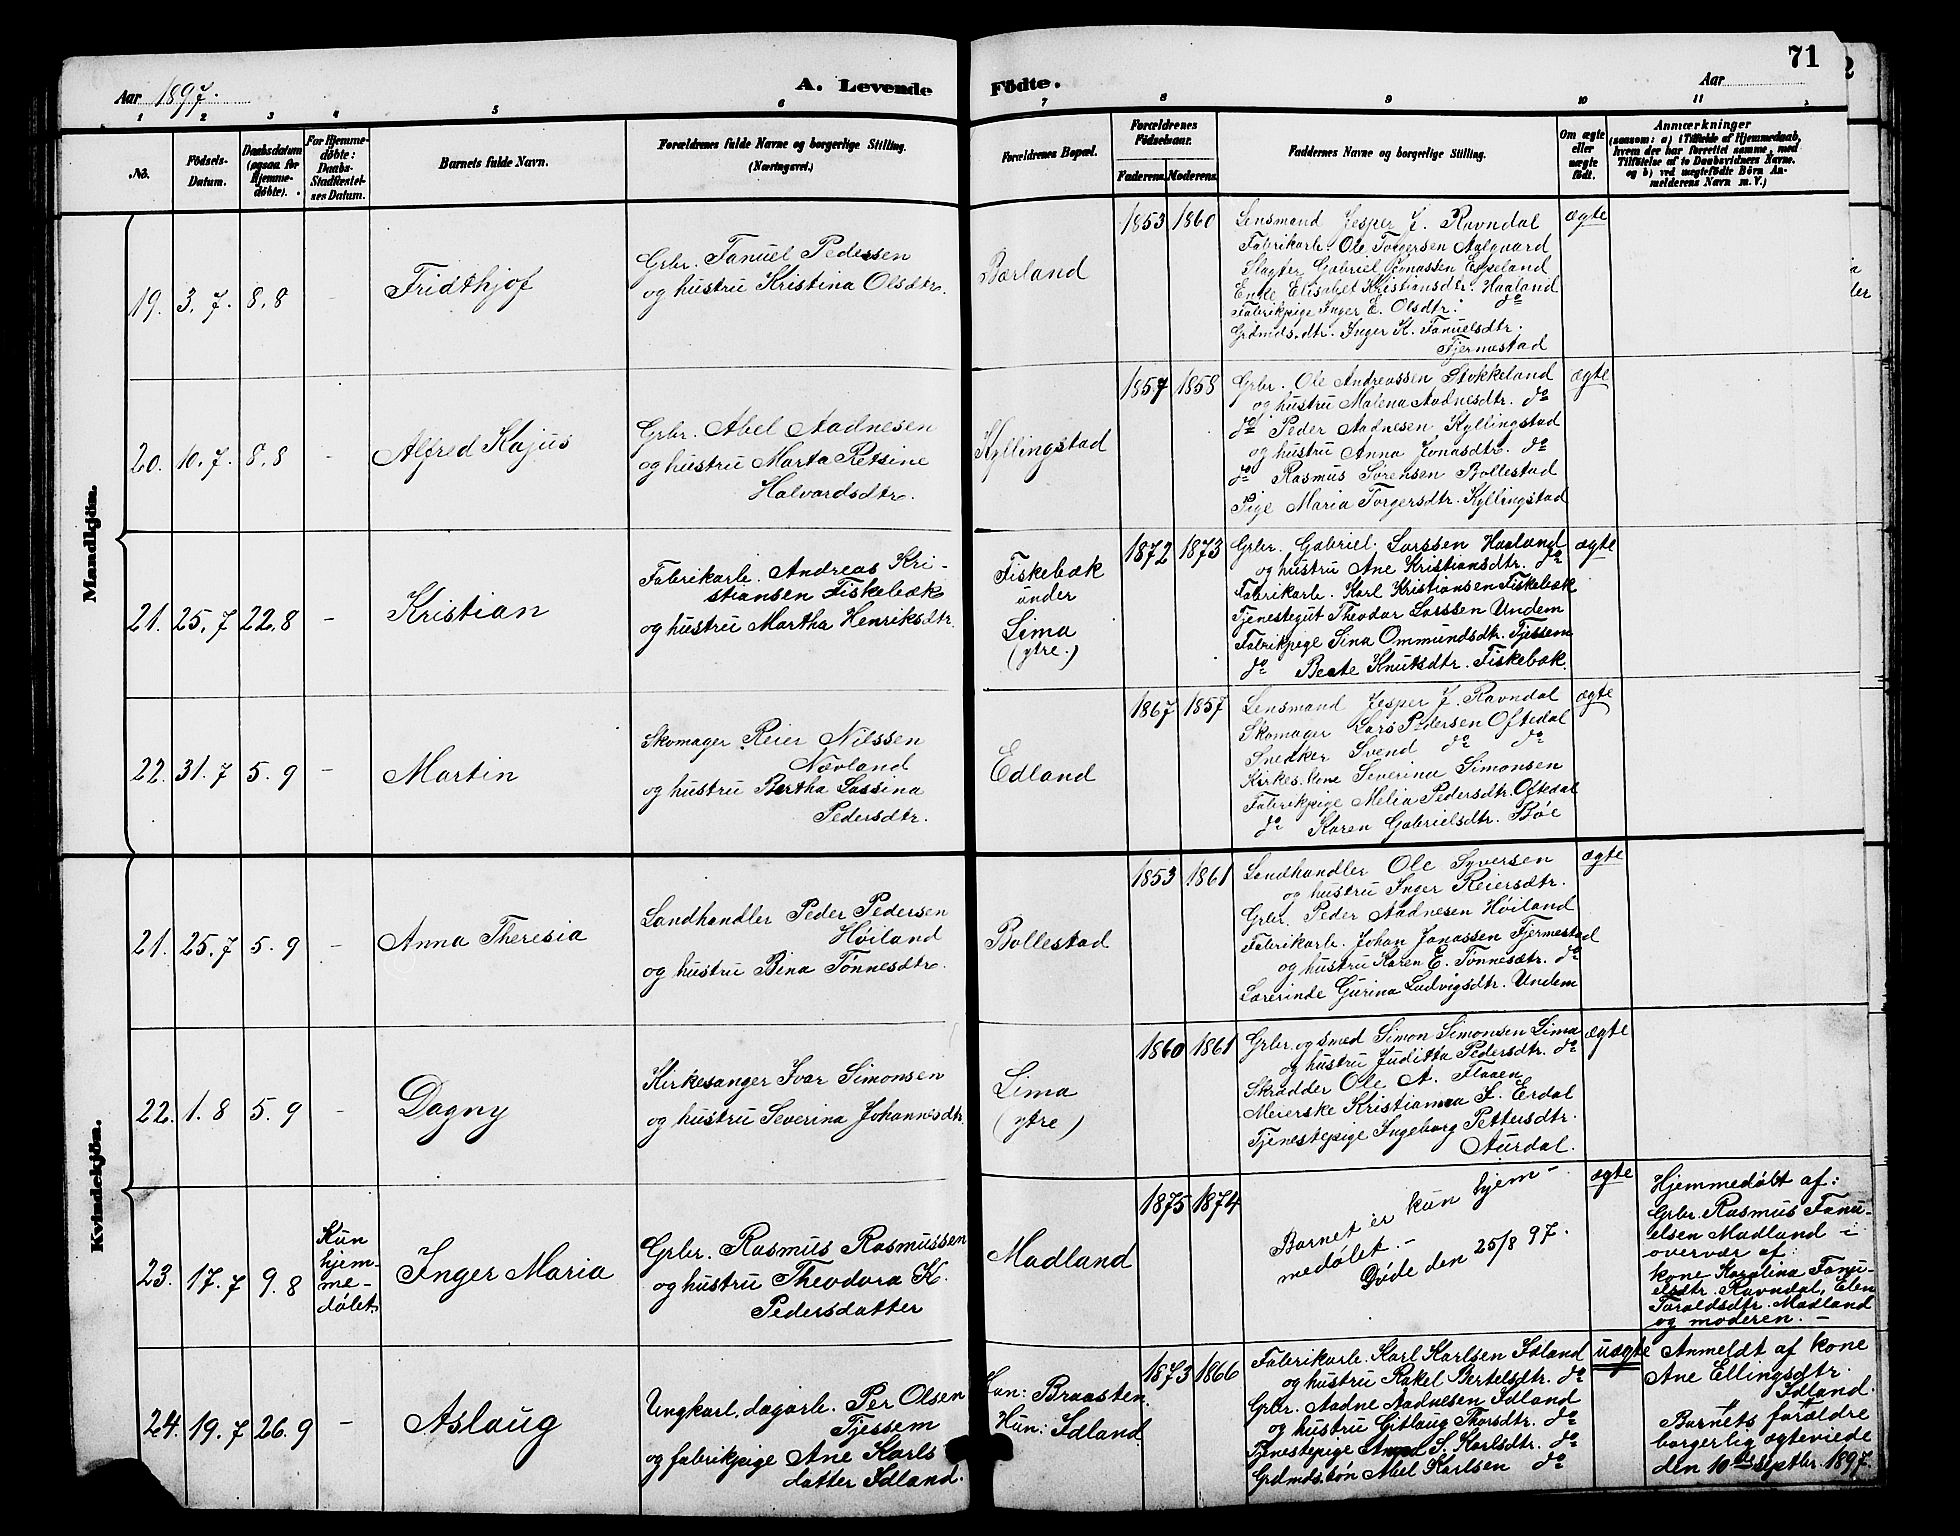 71
Aar 1897.
A. Levende Födte.
Aar
1 2 3 4 5 6 7 8 9 10 11
No.
Födsels-
Datum.
Daabsdatum
(ogsaa for
Hjemme-
döbte).
For Hjemme-
döbte:
Daabs-
Stadfæstel-
ses Datum.
Barnets fulde Navn.
Forældrenes fulde Navne og borgerlige Stilling.
(Næringsvei.)
Forældrenes Bopæl.
Forældrenes
Födselsaar.
Faderens. Moderens.
Faddernes Navne og borgerlige Stilling.
Om ægte
eller
uægte
födt.
Anmærkninger
(saasom: a) i Tilfælde af Hjemmedaab,
hvem der har forrettet samme, med
Tilföielse af to Daabsvidners Navne,
og b) ved uægtefödte Börn An-
melderens Navn m. V.)
Mandkjön.
19. 3. 7. 8.8 -
Fridthjof
Grbr. Fanuel Pedersen
og hustru Kristina Olsdtr.
Bærland
1853 1860
Lensmand Jesper J. Ravndal
Fabrikarb. Ole Torgersen Aalgaard
Slagter Gabriel Jonassen Espeland
Enke Elisabet Kristiansdtr. Haaland
Fabrikpige Inger E. Olsdtr. do
Grdmds.dtr. Inger K. Fanuelsdtr.
Fjermestad
ægte
20. 10. 7. 8.8 -
Alfred Kajus
Grbr. Abel Aadnesen
og hustru Marta Retsine
Halvardsdtr.
Kyllingstad
1857 1858
Grbr. Ole Andreassen Stokkeland
og hustru Malena Aadnesdtr. do
do Peder Aadnesen Kyllingstad
og hustru Anna Jonasdtr. do
do Rasmus Sörensen Bollestad
Pige Maria Torgersdtr. Kyllingstad
ægte
21. 25. 7 22.8 -
Kristian
Fabrikarb. Andreas Kri-
stiansen Fiskebæk
og hustru Martha Henriksdtr.
Fiskebæk
under
Lima
(ytre.)
1872 1873
Grbr. Gabriel Larssen Haaland
og hustru Ane Kristiansdtr. do
Fabrikarb. Karl Kristiansen Fiskebæk
Tjenestegut Theodor Larssen Undem
Fabrikpige Sina Ommundsdtr. Tjessem
do Beate Knutsdtr. Fiskebæk.
ægte
22. 31. 7 5. 9 -
Martin
Skomager Reier Nilssen
Nævland
og hustru Bertha Lassina
Pedersdtr.
Edland
1867 1857
Lensmand Jesper J. Ravndal
Skomager Lars Pedersen Oftedal
Snedker Svend do do
Kirkes. kone Severina Simonsen
Fabrikpige Melia Pedersdtr. Oftedal
do Karen Gabrielsdtr. Böe
ægte
Kvindekjön.
21. 25. 7 5. 9 -
Anna Theresia
Landhandler Peder Pedersen
Höiland
og hustru Bina Tönnesdtr.
Bollestad
1853 1861
Landhandler Ole Syversen
og hustru Inger Reiersdtr.
Grbr. Peder Aadnesen Höiland
Fabrikarb. Johan Jonassen Fjermestad
og hustru Karen E. Tönnesdtr. do
Lærerinde Gurina Ludvigsdtr. Undem
ægte
22. 1. 8 5. 9 -
Dagny
Kirkesanger Ivar Simonsen
og hustru Severina Johannesdtr
Lima
(ytre)
1860 1861
Grbr. og smed Simon Simonsen Lima
og hustru Juditta Pedersdtr. do
Skrædder Ole A. Flaaen
Meierske Kristianna I. Erdal
Tjenestepige Ingeborg Pettersdtr.
Aurdal.
ægte
23. 17. 7 9. 8
Kun
hjem-
me-
döbt
Inger Maria
Grbr. Rasmus Rasmussen
og hustru Theodora K.
Pedersdatter
Madland
1875 1874
Barnet er kun hjem-
medöbt. -
Döde den 25/8 97.
ægte
Hjemmedöbt af:
Grbr. Rasmus Fanu-
elsen Madland i
overvær af:
kone Karolina Fanu-
elsdtr. Ravndal, Elen
Taraldsdtr. Madland
og moderen. -
24. 19. 7 26. 9 -
Aslaug
Ungkarl, dagarb. Per Olsen
Tjessem
og fabrikpige Ane Karls
datter Idland.
Han: Braasten.
Hun: Idland.
1873 1866
Fabrikarb. Karl Karlsen Idland
og hustru Rakel Bertelsdtr. do
Grbr. Aadne Aadnesen Idland
og hustru Gitlaug Thorsdtr. do
Tjenestepige S. Karlsdtr. do
Grdmds.sön Abel Karlsen do
uægte
Anmeldt af kone
Ane Ellingsdtr.
Idland.
Barnets forældre
borgerlig ægteviede
den 10de Septbr. 1897.